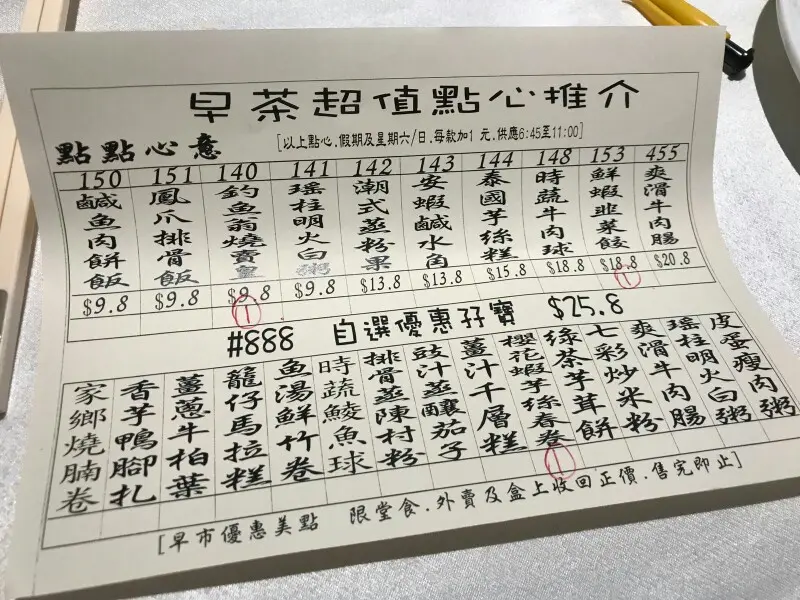 早茶超值點心推介
點點心意
[以上點心.假期及星期六/日.每款加1 元.供應6:45至11:00]
150 151 140 141 142 143 144 148 153 455
鹹魚肉餅飯
鳳爪排骨飯
釣魚翁燒賣皇
瑤柱明火白粥
潮式蒸粉果
安蝦鹹水角
泰國芋絲糕
時蔬牛肉球
鮮蝦韮菜餃
爽滑牛肉腸
$9.8 $9.8 $9.8 $9.8 $13.8 $13.8 $15.8 $18.8 $18.8 $20.8
① ①
#888 自選優惠孖寶 $25.8
家鄉燒腩卷
香芋鴨腳扎
薑蔥牛柏葉
籠仔馬拉糕
魚湯鮮竹卷
時蔬鯪魚球
排骨蒸陳村粉
豉汁蒸釀茄子
薑汁千層糕
櫻花蝦芋絲春卷
綠茶芋茸餅
七彩炒米粉
爽滑牛肉腸
瑤柱明火白粥
皮蛋瘦肉粥
①
[早市優惠美點 限堂食.外賣及盒上收回正價.售完即止]